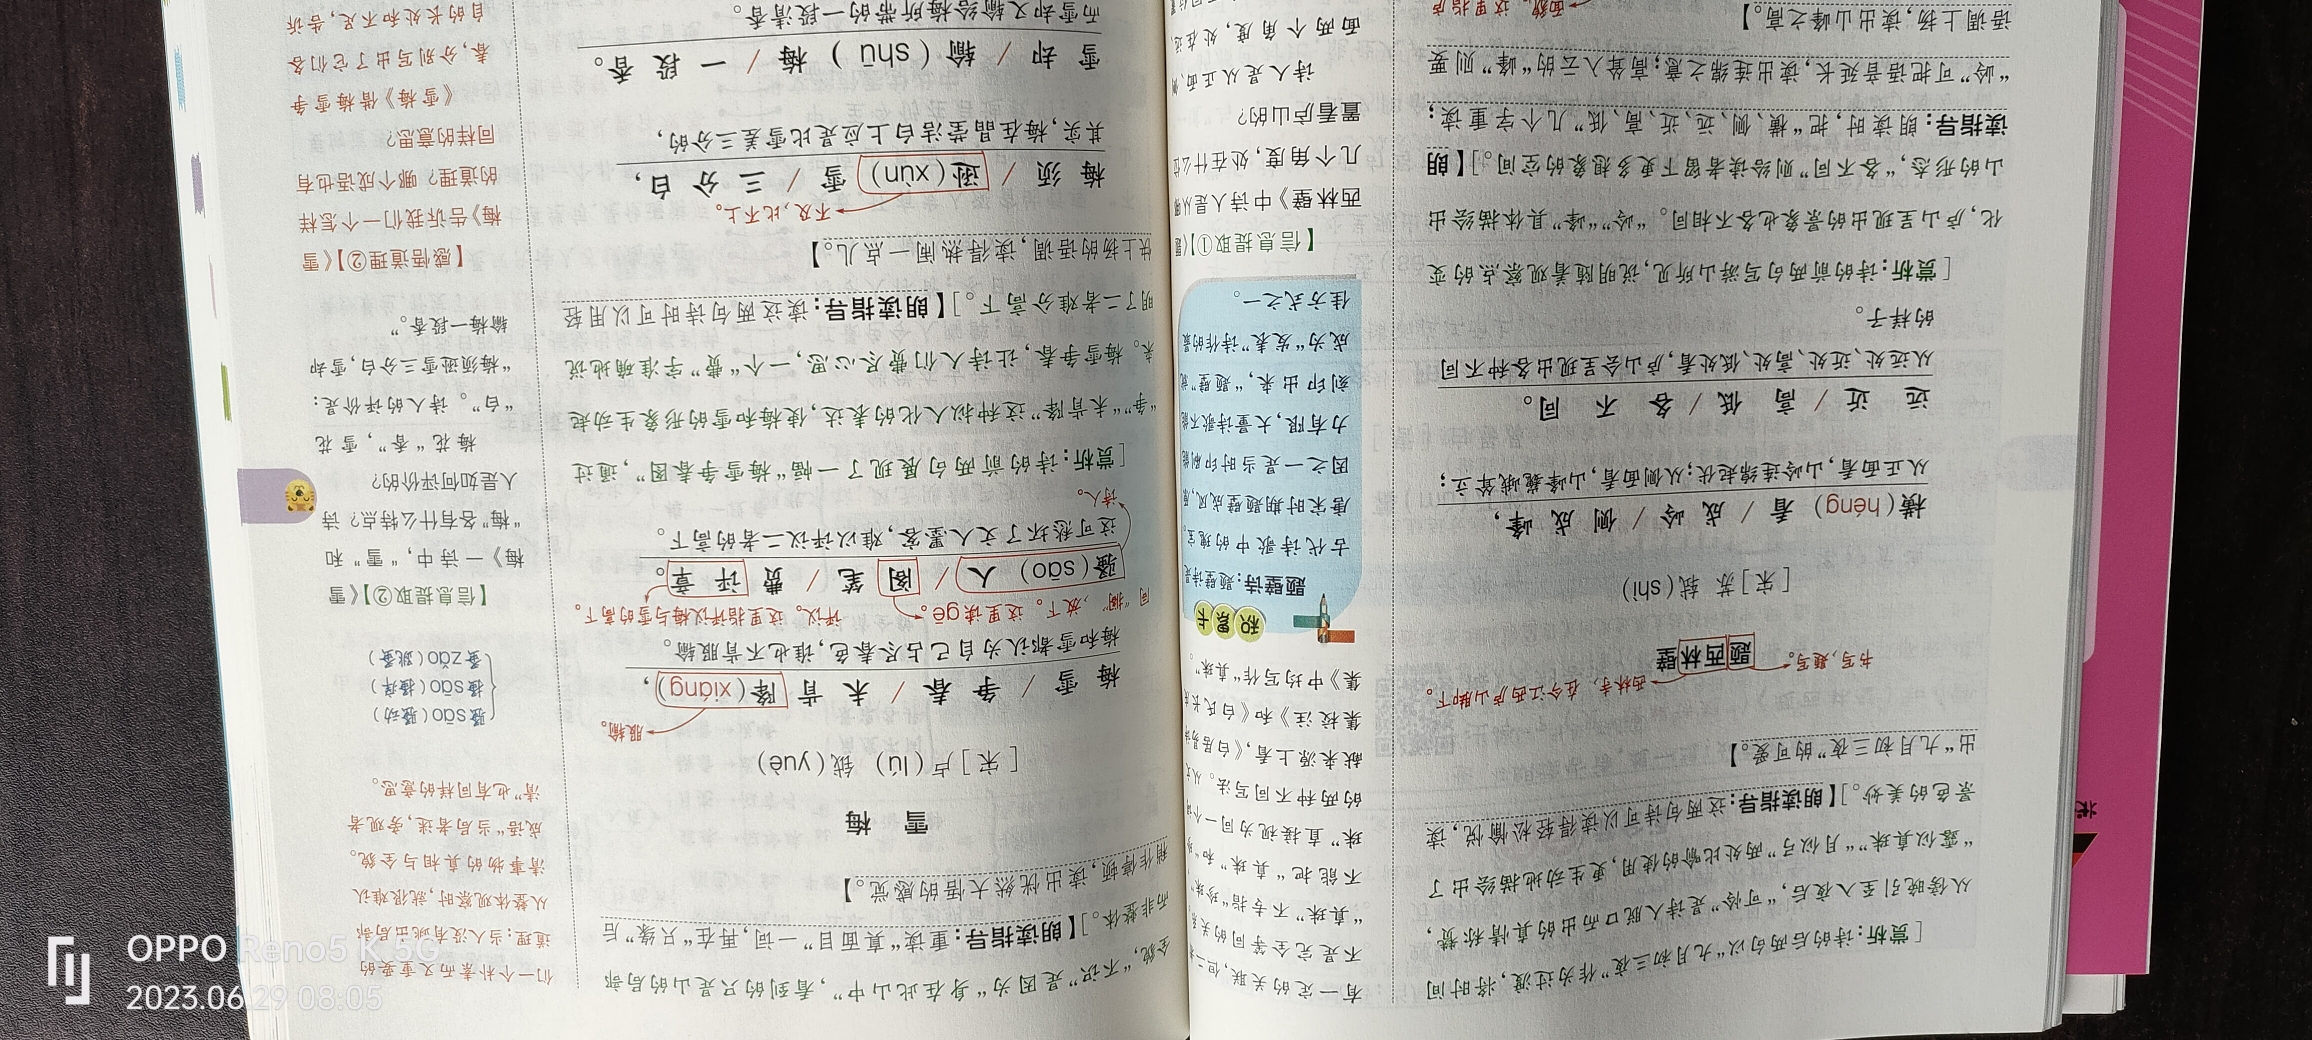 [赏析:诗的后两句以“九月初三夜”作为过渡,将时间
从傍晚引至入夜后,“可怜”是诗人脱口而出的真情称赞,
“露似真珠”“月似弓”两处比喻的使用,更生动地描绘出了
景色的美妙。]【朗读指导:这两句诗可以读得轻松愉悦,读
出“九月初三夜”的可爱。】
西林寺,在今江西庐山脚下。
书写,题写。
题西林壁
[宋]苏 轼(shì)
横(héng) 看 / 成 岭 / 侧 成 峰,
从正面看,山岭连绵起伏;从侧面看,山峰巍峨耸立;
远 近 / 高 低 / 各 不 同。
从远处、近处、高处、低处看,庐山会呈现出各种不同
的样子。
[赏析:诗的前两句写游山所见,说明随着观察点的变
化,庐山呈现出的景象也各不相同。“岭”“峰”具体描绘出
山的形态,“各不同”则给读者留下更多想象的空间。]【朗
读指导:朗读时,把“横、侧、远、近、高、低”几个字重读;
“岭”可把语音延长,读出连绵之意;高耸入云的“峰”则要
语调上扬,读出山峰之高。】
面貌。这里指庐
有一定的关联,但二
不是完全等同的关系
“真珠”不专指“珍珠
不能把“真珠”和“
珠”直接视为同一个
的两种不同写法。从
献来源上看,《白居易
集校注》和《白氏长
集》中均写作“真珠”。
积累卡
题壁诗:题壁诗是
古代诗歌中的瑰宝。
唐宋时期题壁成风,原
因之一是当时印刷能
力有限,大量诗歌不能
刻印出来,“题壁”就
成为“发表”诗作的最
佳方式之一。
【信息提取①】《题
西林壁》中诗人是从哪
几个角度,处在什么位
置看庐山的?
诗人是从正面、侧
面两个角度,处在远
全貌,“不识”是因为“身在此山中”,看到的只是山的局部
而非整体。]【朗读指导:重读“真面目”一词,再在“只缘”后
稍作停顿,读出恍然大悟的感觉。】
雪 梅
[宋]卢(lú) 钺(yuè)
服输。
梅 雪 / 争 春 / 未 肯 降(xiáng),
梅和雪都认为自己占尽春色,谁也不肯服输。
同“搁”,放下。这里读gē。
评议。这里指评议梅与雪的高下。
骚(sāo) 人 / 阁 笔 / 费 评 章。
这可愁坏了文人墨客,难以评议二者的高下。
诗人。
[赏析:诗的前两句展现了一幅“梅雪争春图”,通过
“争”“未肯降”这种拟人化的表达,使梅和雪的形象生动起
来。梅雪争春,让诗人们费尽心思,一个“费”字准确地说
明了二者难分高下。]【朗读指导:读这两句诗时可以用轻
快上扬的语调,读得热闹一点儿。】
不及,比不上。
梅 须 / 逊(xùn) 雪 / 三 分 白,
其实,梅在晶莹洁白上应是比雪差三分的,
雪 却 / 输(shū) 梅 / 一 段 香。
而雪却又输给梅所带的一段清香。
们一个朴素而又重要的
道理:当人没有跳出局部
从整体观察时,就很难认
清事物的真相与全貌。
成语“当局者迷,旁观者
清”也有同样的意思。
骚sāo(骚动)
搔sāo(搔痒)
蚤zǎo(跳蚤)
【信息提取②】《雪
梅》一诗中,“雪”和
“梅”各有什么特点?诗
人是如何评价的?
梅花“香”,雪花
“白”。诗人的评价是:
“梅须逊雪三分白,雪却
输梅一段香。”
【感悟道理②】《雪
梅》告诉我们一个怎样
的道理?哪个成语也有
同样的意思?
《雪梅》借梅雪争
春,分别写出了它们各
自的长处和不足,告诉
OPPO Reno5 K 5G
2023.06.29 08:05